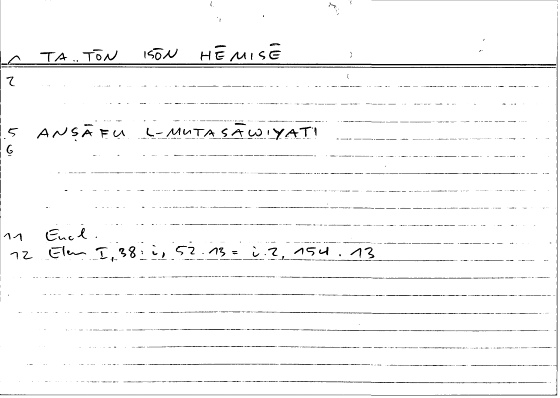 1 TA..TŌN ISŌN HĒMISĒ
2
5 ANṢĀFU L-MUTASĀWIYATI
6
11 Eucl.
12 Elem I,38: i, 52.13 = i.2, 154.13